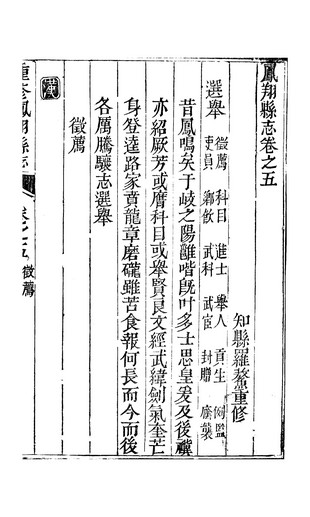 鳳翔縣志卷之五
知縣羅鰲重修
選舉 徵薦 科目 進士 舉人 貢生 例監
吏員 鄉飲 武科 武宦 封贈 廕襲
昔鳳鳴矣于岐之陽雝喈旣叶多士思皇爰及後禩
亦紹厥芳或膺科目或舉賢良文經武緯劍氣奎芒
身登逵路家賁龍章磨礲雖苦食報何長而今而後
各厲騰驤志選舉
徵薦
重修鳳翔縣志
卷之五 徵薦